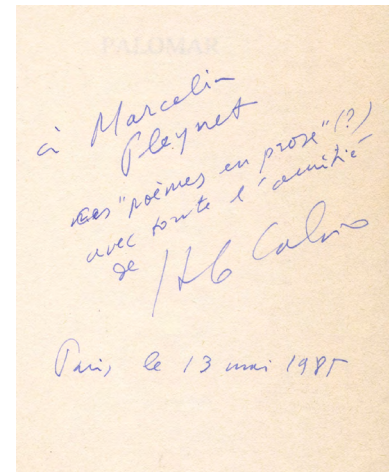 PALOMAR
à Marcelin
Pleynet
ces "poèmes en prose" (?)
avec toute l'amitié
de
Italo Calvino
Paris, le 13 mai 1985